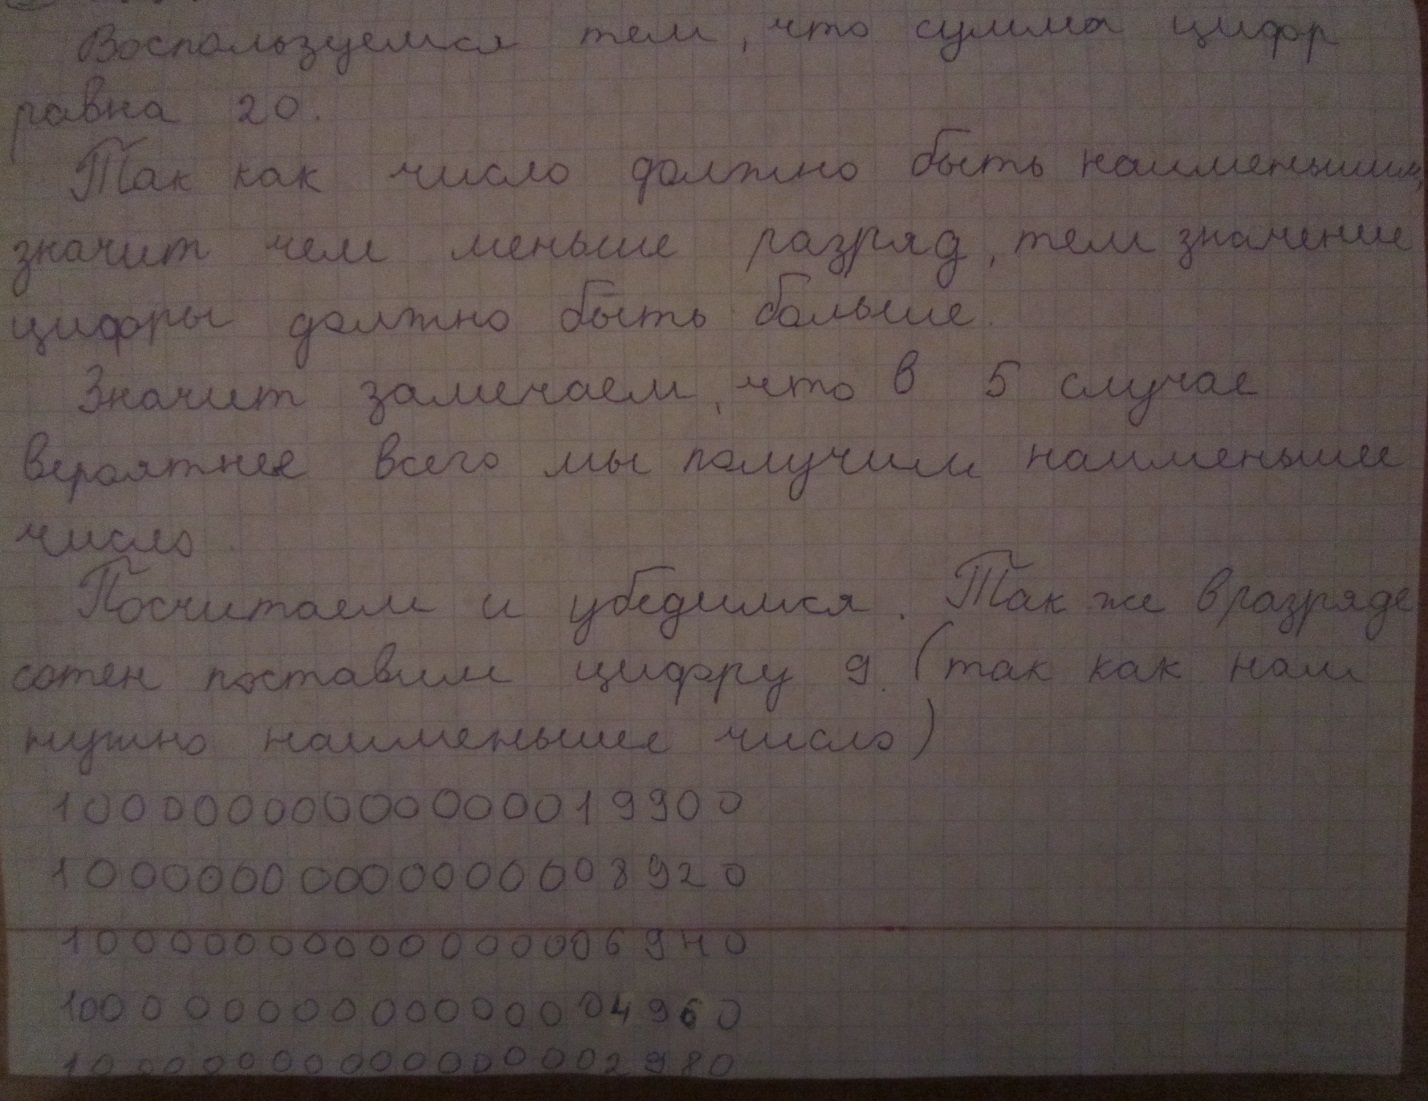 Воспользуемся тем, что сумма цифр
равна 20.
Так как число должно быть наименьшим,
значит чем меньше разряд, тем значение
цифры должно быть больше.
Значит замечаем, что в 5 случае
вероятнее всего мы получим наименьшее
число.
Посчитаем и убедимся. Так же в разряде
сотен поставим цифру 9. (так как нам
нужно наименьшее число)
10000000000000019900
10000000000000008920
10000000000000006940
10000000000000004960
10000000000000002980